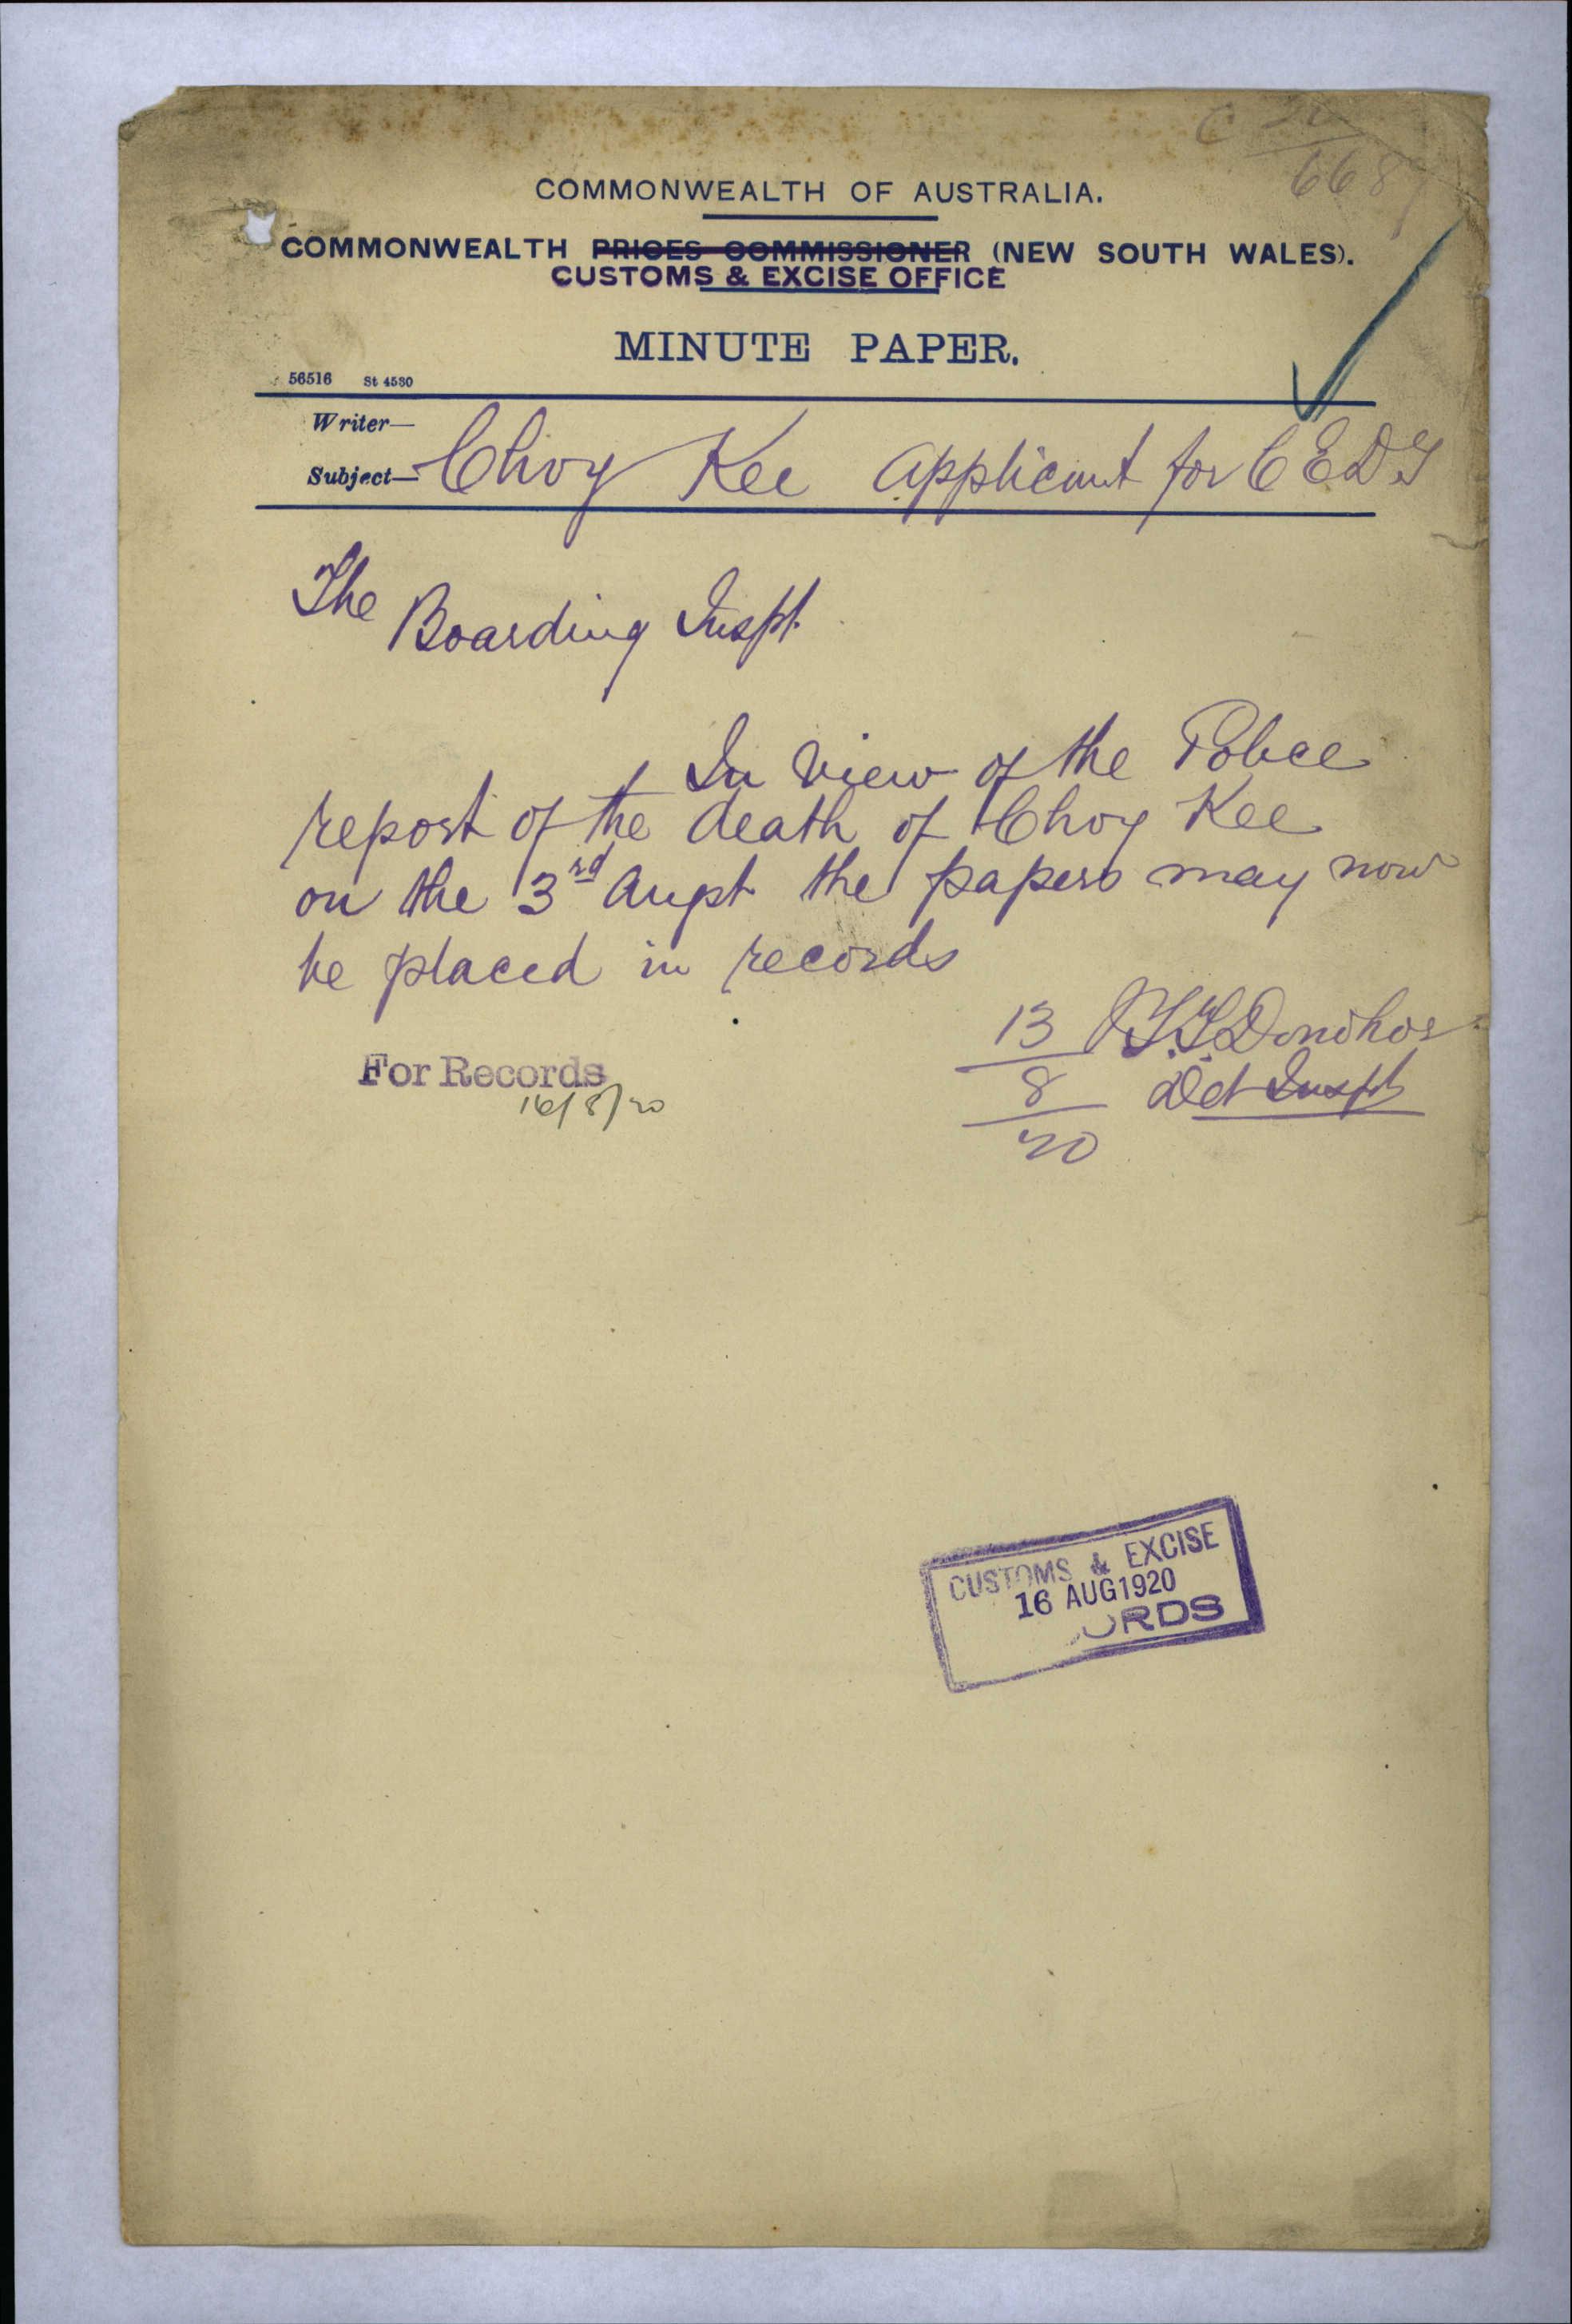 C 20
668
COMMONWEALTH OF AUSTRALIA.
COMMONWEALTH PRICES COMMISSIONER (NEW SOUTH WALES).
CUSTOMS & EXCISE OFFICE
MINUTE PAPER.
56516 St 4580
Writer—
Subject— Choy Kee applicant for C E D T
The
Boarding Inspt.
In view of the Police
report of the death of Choy Kee
on the 3rd Augst the papers may now
be placed in records
13 Donohoe
8 Det Inspt
20
For Records
16/8/20
CUSTOMS & EXCISE
16 AUG 1920
ORDS